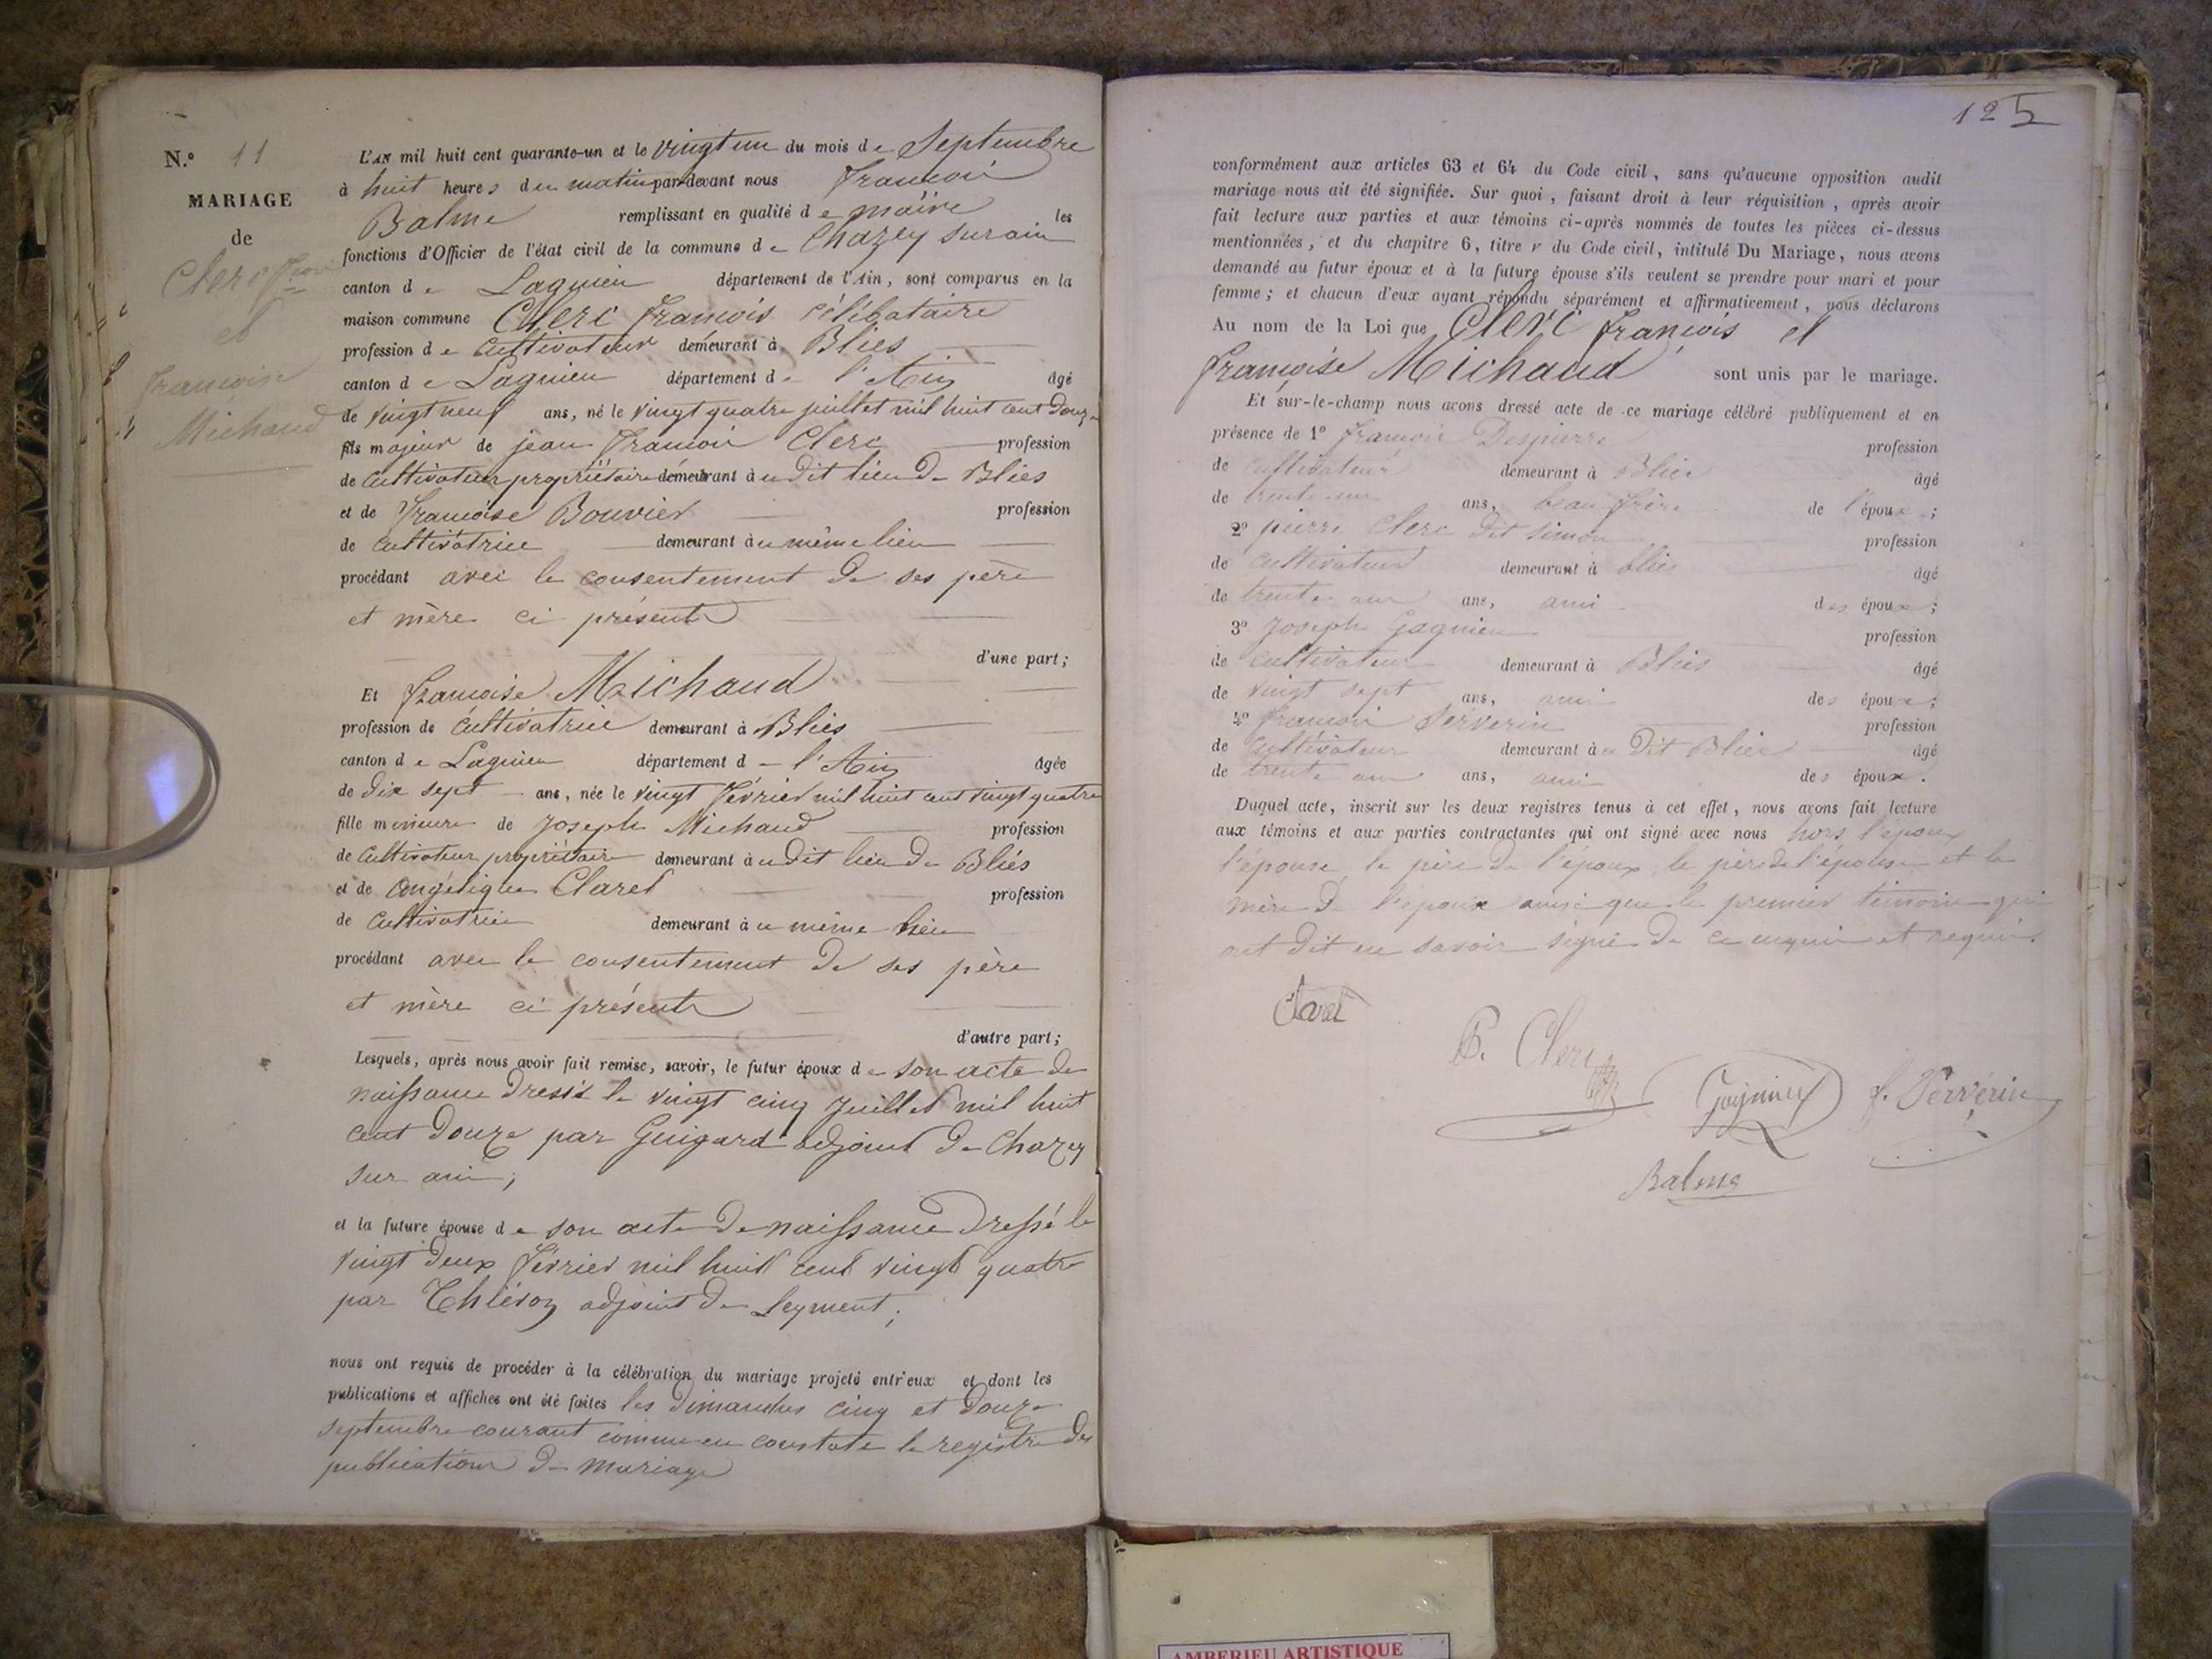 N.° 11
MARIAGE
de
Clerc
et
francoise
Michaud
L'AN mil huit cent quarante-un et le vingt un du mois de Septembre
à huit heures du matin par-devant nous francois
Balme remplissant en qualité de maire les
fonctions d'Officier de l'état civil de la commune de Chazey sur ain
canton de Lagnieu département de l'Ain, sont comparus en la
maison commune Clerc francois célibataire
profession de cultivateur demeurant à Blies
canton de Lagnieu département de l'Ain âgé
de vingt neuf ans, né le vingt quatre juillet mil huit cent douze
fils majeur de jean francois Clerc profession
de cultivateur propriétaire demeurant au dit lieu de Blies
et de francoise Bouvier profession
de cultivatrice demeurant au même lieu
procédant avec le consentement de ses père
et mère ci présents
d'une part;
Et francoise Michaud
profession de cultivatrice demeurant à Blies
canton de Lagnieu département de l'Ain âgée
de dix sept ans, née le vingt février mil huit cent vingt quatre
fille mineure de Joseph Michaud profession
de cultivateur propriétaire demeurant au dit lieu de Bliés
et de angélique Claret profession
de cultivatrice demeurant au même lieu
procédant avec le consentement de ses père
et mère ci présents
d'autre part;
Lesquels, après nous avoir fait remise, savoir, le futur époux de son acte de
naissance dressé le vingt cinq juillet mil huit
cent douze par Guigard adjoint de Chazey
sur ain;
et la future épouse de son acte de naissance dressé le
vingt deux février mil huit cent vingt quatre
par adjoint de Leyment;
nous ont requis de procéder à la célébration du mariage projeté entr'eux et dont les
publications et affiches ont été faites les dimanches cinq et douze
septembre courant comme en constate le registre des
publications de mariage
125
conformément aux articles 63 et 64 du Code civil, sans qu'aucune opposition audit
mariage nous ait été signifiée. Sur quoi, faisant droit à leur réquisition, après avoir
fait lecture aux parties et aux témoins ci-après nommés de toutes les pièces ci-dessus
mentionnées, et du chapitre 6, titre v du Code civil, intitulé Du Mariage, nous avons
demandé au futur époux et à la future épouse s'ils veulent se prendre pour mari et pour
femme; et chacun d'eux ayant répondu séparément et affirmativement, nous déclarons
Au nom de la Loi que Clerc francois et
francoise Michaud sont unis par le mariage.
Et sur-le-champ nous avons dressé acte de ce mariage célébré publiquement et en
présence de 1° francois Despierre profession
de cultivateur demeurant à Blies âgé
de trente ans, beau frère de l'époux;
2° pierre Clerc dit simon profession
de cultivateur demeurant à blies âgé
de trente ans, ami des époux;
3° Joseph Gagnieu profession
de cultivateur demeurant à Blies âgé
de vingt sept ans, ami des époux;
4° francois Serverin profession
de cultivateur demeurant au dit Blies âgé
de trente ans, ami des époux.
Duquel acte, inscrit sur les deux registres tenus à cet effet, nous avons fait lecture
aux témoins et aux parties contractantes qui ont signé avec nous hors l'époux
l'épouse le père de l'époux le père de l'épouse et la
mère de l'époux ainsi que le premier témoin qui
ont dit ne savoir signé de ce enquis et requis.
Claret
P. Clerc
Gagnieu
f. Serverin
Balme
AMBERIEU ARTISTIQUE